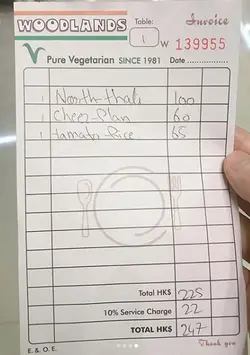 WOODLANDS Table: Invoice
1 W 139955
V Pure Vegetarian SINCE 1981 Date
1 North thali 100
1 Cheez-Plan 60
1 tamato Rice 65
Total HK$ 225
10% Service Charge 22
TOTAL HK$ 247
E. & O. E. Thank you